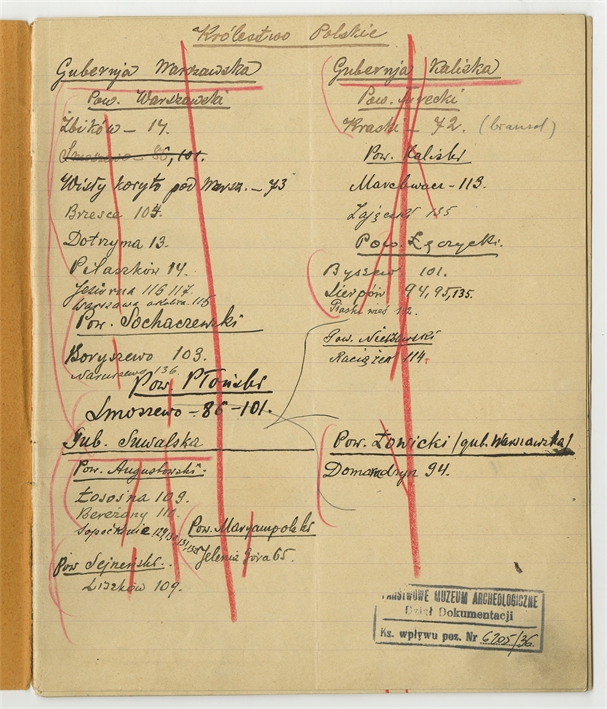 Królestwo Polskie
Gubernja Warszawska
Pow. Warszawski
Żbików – 14.
Smoszewo – 86, 101.
Wisły koryto pod Warsz. – 73
Brzesca 104.
Dotrzyma 13.
Piłaszków 14.
Jeziorna 116 117.
Warszawa okolica 115
Pow. Sochaczewski
Boryszewo 103.
Naruszewo 136.
Pow. Płoński
Smoszewo – 86 – 101.
Gub. Suwalska
Pow. Augustowski.
Łosośna 109.
Bereżany 110.
Sopoćkinie
Pow. Maryampolski
Jelenia Góra 65.
Pow. Sejneński.
Liszków 109.
Gubernja Kaliska
Pow. Turecki
Kraski – 72. (bransol)
Pow. Kaliski
Marchwacz – 113.
Zajączki 135
Pow. Łęczycki.
Byszew 101.
Sierpów 94, 95, 135.
Piaski
Pow. Nieszawski
Raciążek 114.
Pow. Łowicki (gub. Warszawska)
94.
PAŃSTWOWE MUZEUM ARCHEOLOGICZNE
Dział Dokumentacji
Ks. wpływu poz. Nr 6205/36.